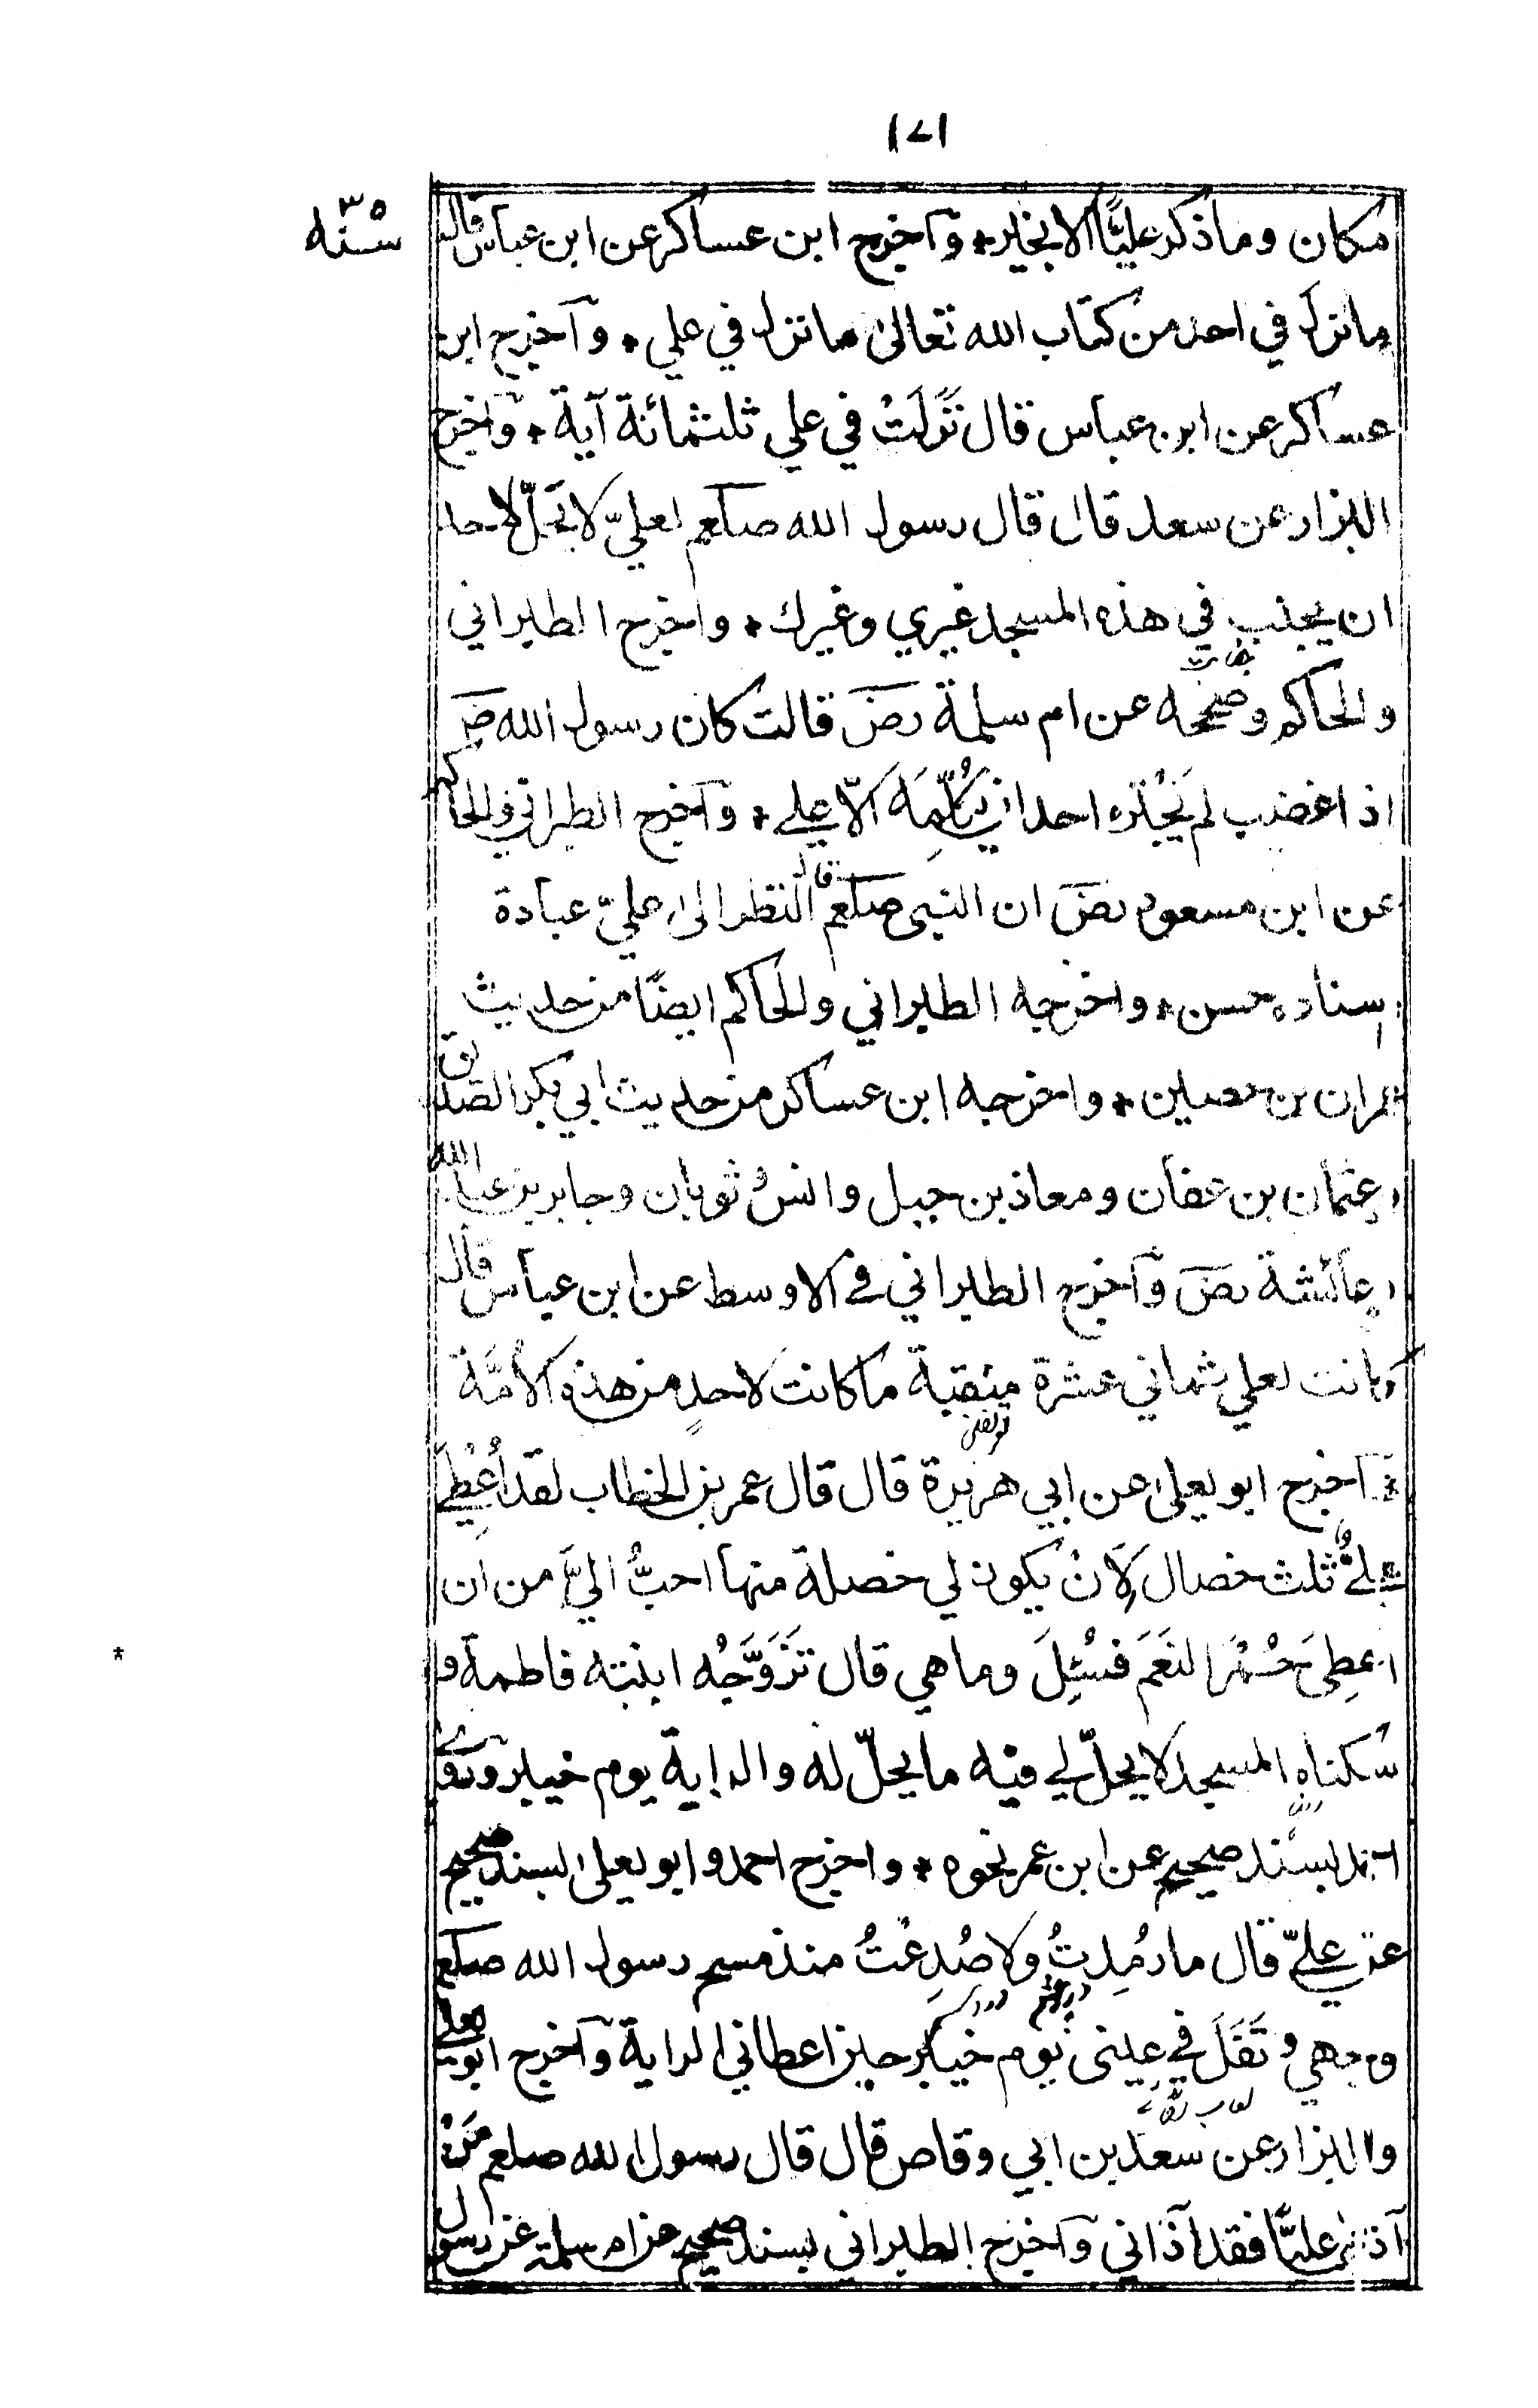 ١٧١
شنّه
مكان وما ذكر عليًّا الا بخير * وآخرج ابن عساكر عن ابن عباس قال
ما نزل في احد من كتاب الله تعالىٰ ما نزل في علي * وآخرج ابن
عساكر عن ابن عباس قال نَزَلَتْ في علي ثلثمائة آية * وآخرج
البزار عن سعد قال قال رسول الله صلعم لعليّ لا يحلّ لاحد
ان يجنب في هذه المسجد غيري وغيرك * واخرج الطبراني
والحاكم وصححه عن ام سلمة رضَ قالت كان رسول الله صَ
اذا غضب لم يَجْتَرِه احد ان يُكَلِّمَه الّا علي * وآخرج الطبراني والحاكم
عن ابن مسعود رضَ ان النبي صلعم قال النظر الىٰ عليّ عبادة
اسناده حسن * واخرجه الطبراني والحاكم ايضًا من حديث
عمران بن حصين * واخرجه ابن عساكر من حديث ابي بكر الصديق
وعثمان بن عفان ومعاذ بن جبل وانس و ثوبان وجابر بن عبد الله
وعائشة رضَ وآخرج الطبراني في الاوسط عن ابن عباس قال
كانت لعلي ثماني عشرة منقبة ما كانت لاحدٍ من هذه الامَّة
وآخرج ابو يعلىٰ عن ابي هريرة قال قال عمر بن الخطاب لقد اُعْطِيَ
عليٌّ ثلث خصال لَاَنْ يكون لي خصلة منها احبُّ اليَّ من ان
اعطِىَ حُمْرَ النَعَم فسُئِلَ وما هي قال تَزَوَّجُه ابنته فاطمة و
سُكناه المسجد لا يحلّ لي فيه ما يحلّ له والراية يوم خيبر وروى
احمد بسند صحيح عن ابن عمر نحوه * واخرج احمد وابو يعلىٰ بسند صحيح
عن عليّ قال ما رمُدِتُ ولا صُدِعْتُ منذ مسح رسول الله صلعم
وجهي و تَفَلَ في عينى يوم خيبر حين اعطاني الراية وآخرج ابو يعلى
لعاب
والبزار عن سعد بن ابي وقاص قال قال رسول الله صلعم مَنْ
آذىٰ عليًّا فقد آذاني وآخرج الطبراني بسند صحيح عن ام سلمة عن رسول